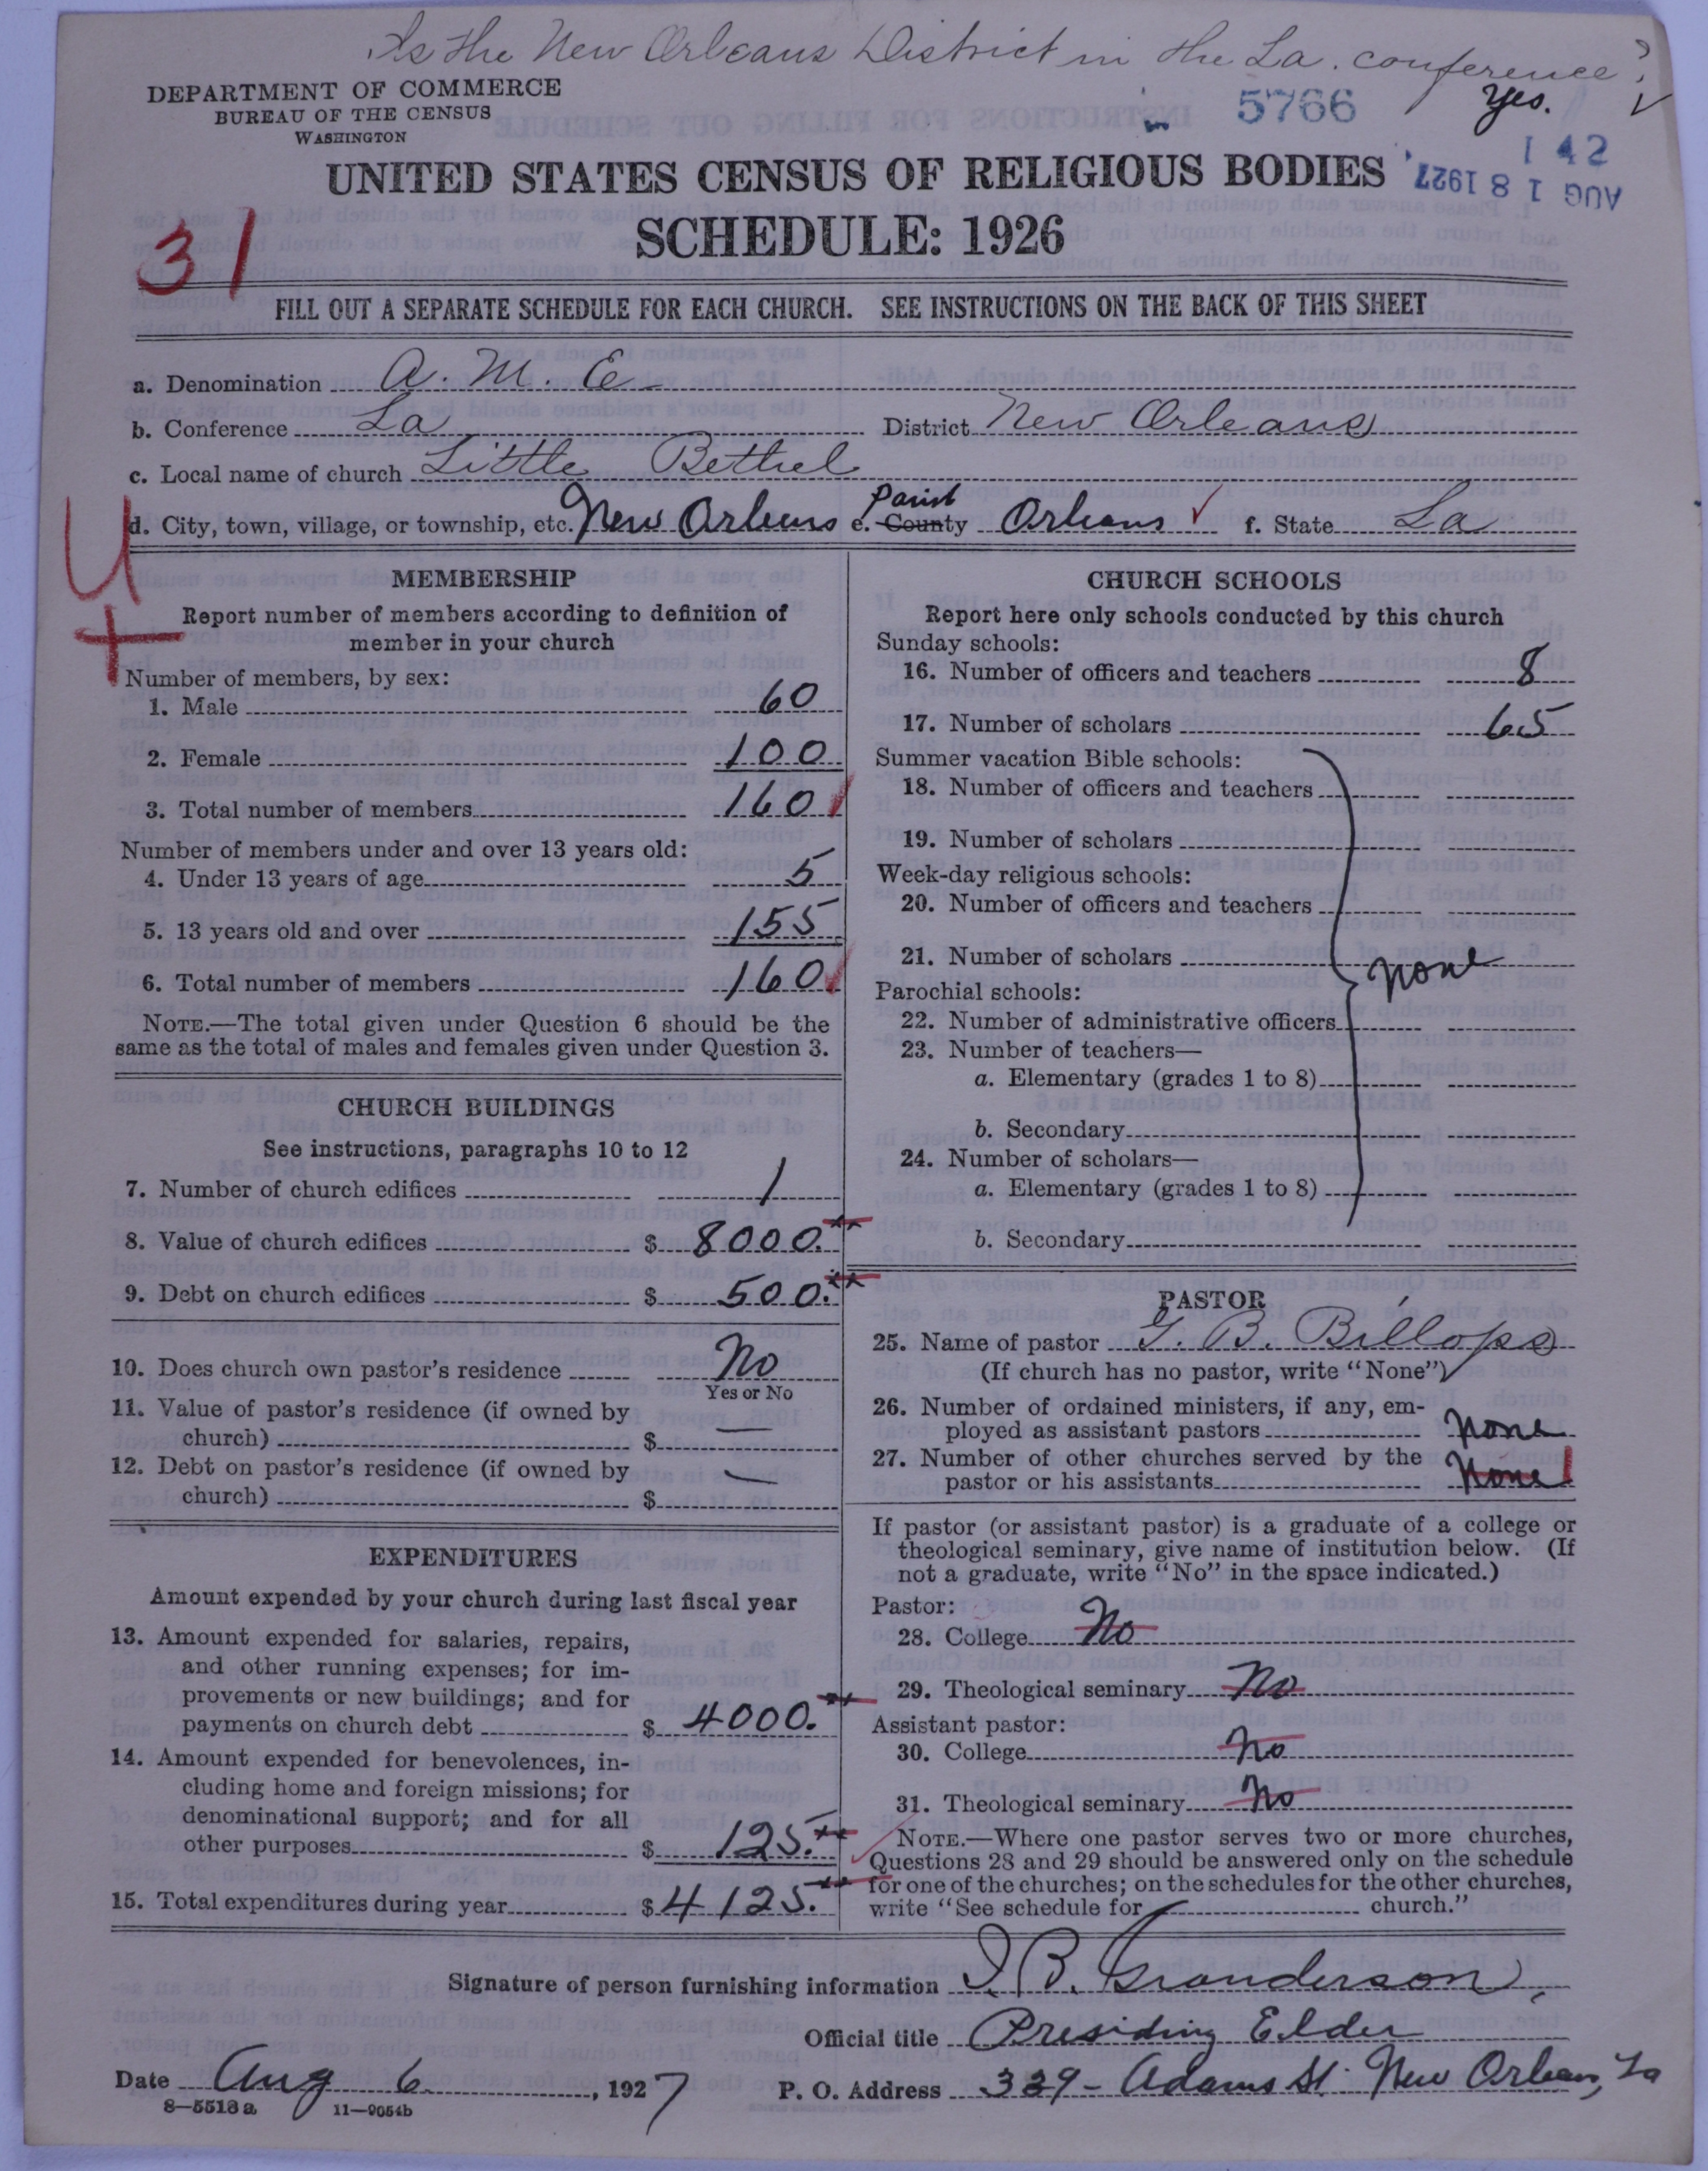 Is the New Orleans District in the La. conference?
Yes.
DEPARTMENT OF COMMERCE
BUREAU OF THE CENSUS
WASHINGTON
5766
142
AUG 18 1927
UNITED STATES CENSUS OF RELIGIOUS BODIES
SCHEDULE: 1926
31
FILL OUT A SEPARATE SCHEDULE FOR EACH CHURCH. SEE INSTRUCTIONS ON THE BACK OF THIS SHEET
a. Denomination A. M. E.
b. Conference La District New Orleans
c. Local name of church Little Bethel
d. City, town, village, or township, etc. New Orleans e. County Parish Orleans f. State La
U
+
MEMBERSHIP
Report number of members according to definition of
member in your church
Number of members, by sex:
1. Male 60
2. Female 100
3. Total number of members 160
Number of members under and over 13 years old:
4. Under 13 years of age 5
5. 13 years old and over 155
6. Total number of members 160
NOTE.—The total given under Question 6 should be the
same as the total of males and females given under Question 3.
CHURCH BUILDINGS
See instructions, paragraphs 10 to 12
7. Number of church edifices 1
8. Value of church edifices $ 8000.
9. Debt on church edifices $ 500.
10. Does church own pastor's residence No
Yes or No
11. Value of pastor's residence (if owned by
church) $ —
12. Debt on pastor's residence (if owned by
church) $ —
EXPENDITURES
Amount expended by your church during last fiscal year
13. Amount expended for salaries, repairs,
and other running expenses; for im-
provements or new buildings; and for
payments on church debt $ 4000.
14. Amount expended for benevolences, in-
cluding home and foreign missions; for
denominational support; and for all
other purposes $ 125.
15. Total expenditures during year $ 4125.
CHURCH SCHOOLS
Report here only schools conducted by this church
Sunday schools:
16. Number of officers and teachers 8
17. Number of scholars 65
Summer vacation Bible schools:
18. Number of officers and teachers
19. Number of scholars
Week-day religious schools:
20. Number of officers and teachers
21. Number of scholars
none
Parochial schools:
22. Number of administrative officers
23. Number of teachers—
a. Elementary (grades 1 to 8)
b. Secondary
24. Number of scholars—
a. Elementary (grades 1 to 8)
b. Secondary
PASTOR
25. Name of pastor G. B. Billops
(If church has no pastor, write "None")
26. Number of ordained ministers, if any, em-
ployed as assistant pastors none
27. Number of other churches served by the
pastor or his assistants none 1
If pastor (or assistant pastor) is a graduate of a college or
theological seminary, give name of institution below. (If
not a graduate, write "No" in the space indicated.)
Pastor:
28. College No
29. Theological seminary No
Assistant pastor:
30. College No
31. Theological seminary No
NOTE.—Where one pastor serves two or more churches,
Questions 28 and 29 should be answered only on the schedule
for one of the churches; on the schedules for the other churches,
write "See schedule for church."
Signature of person furnishing information I. B. Granderson,
Official title Presiding Elder
Date Aug 6, 1927 P. O. Address 339 - Adams St. New Orleans, La
8—5518a 11—9054b